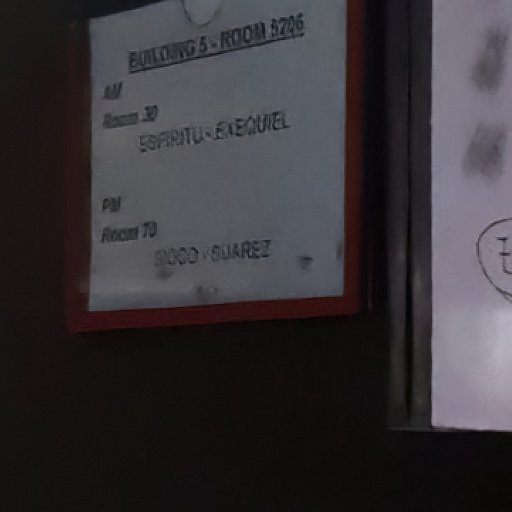 BUILDING 5 - ROOM 5206
AM
Room 30
ESPIRITU - EXEQUIEL
PM
Room 70
- SUAREZ